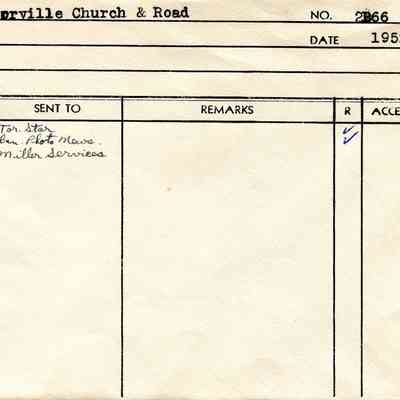 orville Church & Road NO. 2866
DATE 195
SENT TO REMARKS R ACCE
Tor. Star
Can. Photo News.
Miller Services